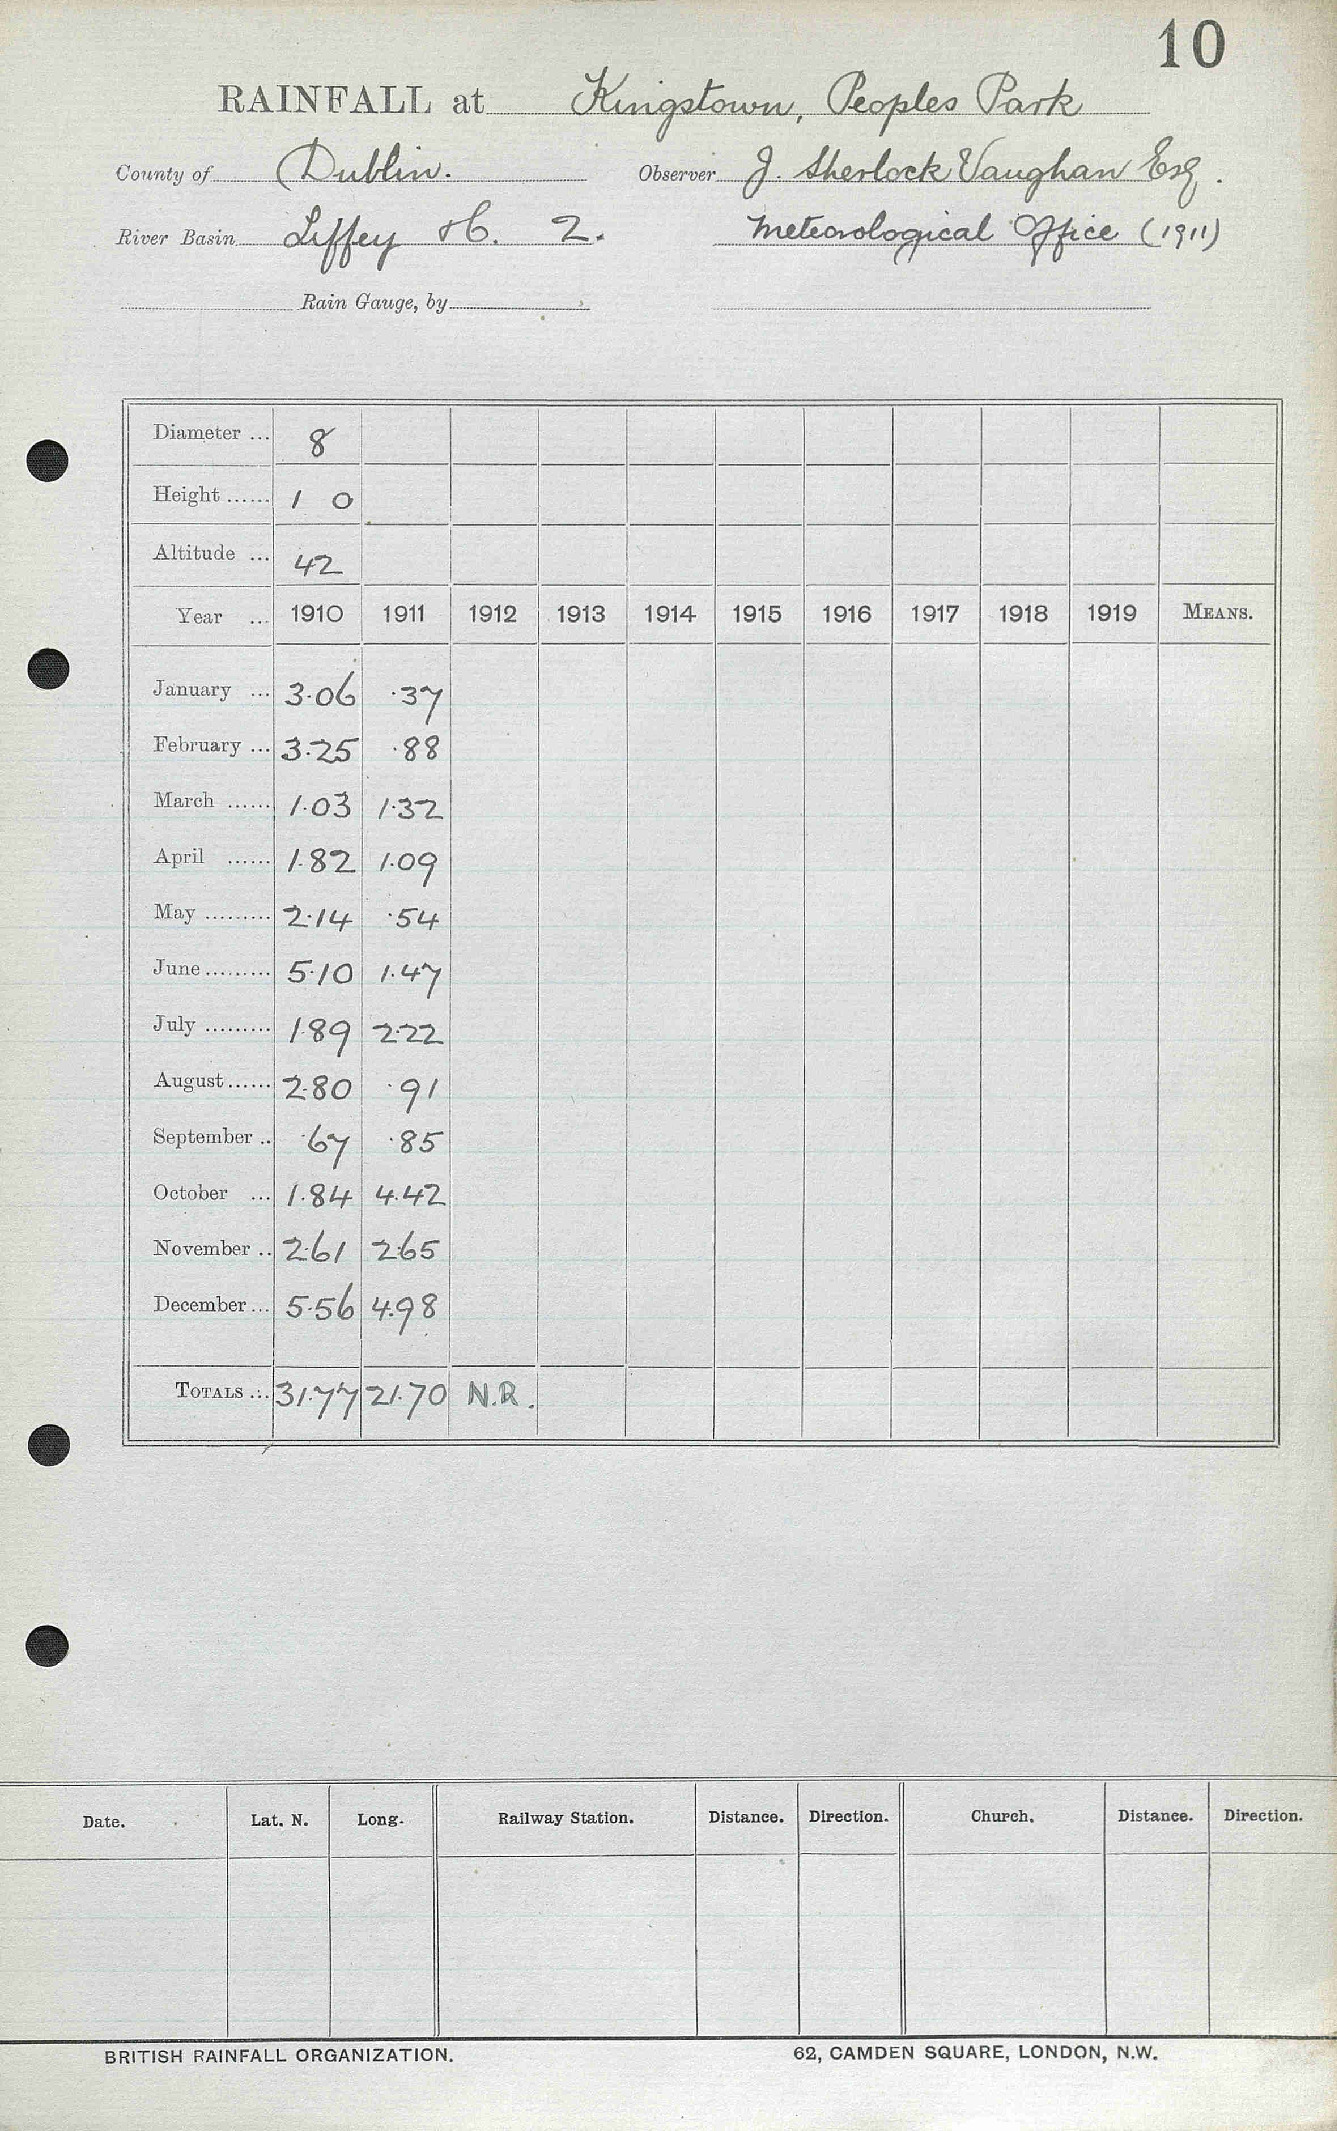 10
RAINFALL at Kingstown, Peoples Park
County of Dublin. Observer J. Sherlock Vaughan Esq.
River Basin Liffey &c. 2. Meteorological Office (1911)
Rain Gauge, by
Diameter ... 8
Height ...... 1 0
Altitude ... 42
Year ... 1910 1911 1912 1913 1914 1915 1916 1917 1918 1919 MEANS.
January ... 3.06 .37
February ... 3.25 .88
March ...... 1.03 1.32
April ...... 1.82 1.09
May ......... 2.14 .54
June ......... 5.10 1.47
July ......... 1.89 2.22
August ...... 2.80 .91
September .. .67 .85
October ... 1.84 4.42
November .. 2.61 2.65
December ... 5.56 4.98
TOTALS ... 31.77 21.70 N.R.
Date. Lat. N. Long. Railway Station. Distance. Direction. Church. Distance. Direction.
BRITISH RAINFALL ORGANIZATION. 62, CAMDEN SQUARE, LONDON, N.W.